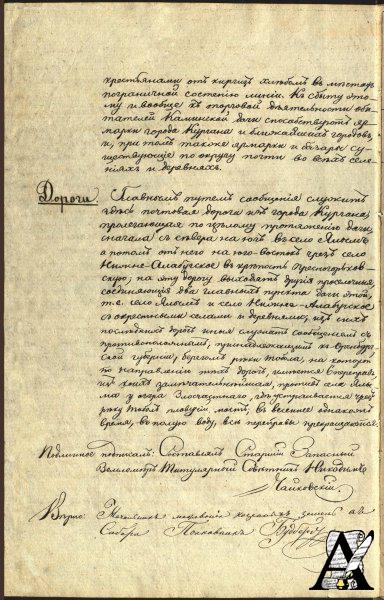 крестьянами отъ киргизъ хлѣбомъ въ мѣстахъ
пограничной состоянію линіи. Къ сбыту этому
му и вообще къ торговой дѣятельности оби-
тателей Каминской дачи способствуютъ яр-
марки города Кургана и ближайшихъ городовъ
и, при томъ также ярмарки и базары су-
ществующіе по округу почти во всѣхъ селе-
ніяхъ и деревняхъ.
Дороги. Главнымъ путемъ сообщенія служитъ
здѣсь почтовая дорога изъ города Кургана,
пролегающая по цѣлому протяженію дачи,
сначала съ сѣвера на югъ въ село Ялымъ
а потомъ отъ него на юго-востокъ чрезъ село
Нижне-Алабугское въ крѣпость Прѣсногорьков-
скую; на эту дорогу выходятъ другія проселочныя
соединяющія два главныхъ пункта дачи этой,
т.е. село Ялымъ и село Нижне-Алабугское
съ окрестными селами и деревнями; изъ сихъ
послѣднихъ дорогъ иныя служатъ сообщеніемъ съ
противоположнымъ, принадлежащимъ къ Оренбург-
ской губерніи, берегомъ рѣки Тобола, на которой
по направленію тѣхъ дорогъ, имѣются
изъ коихъ замѣчательнѣйшая, противъ села Ялы-
ма у озера Злочастнаго, гдѣ устраивается чрезъ
рѣку Тоболъ плавучій мостъ; въ весеннее однакожъ
время, въ полую воду, всѣ переправы прекращаются.
Подлинное подписалъ: Составлялъ Старшій Запасный
Землемѣръ Титулярный Совѣтникъ Никодимъ
Чайковскій.
Вѣрно: Межеванія казенныхъ земель въ
Сибири Полковникъ